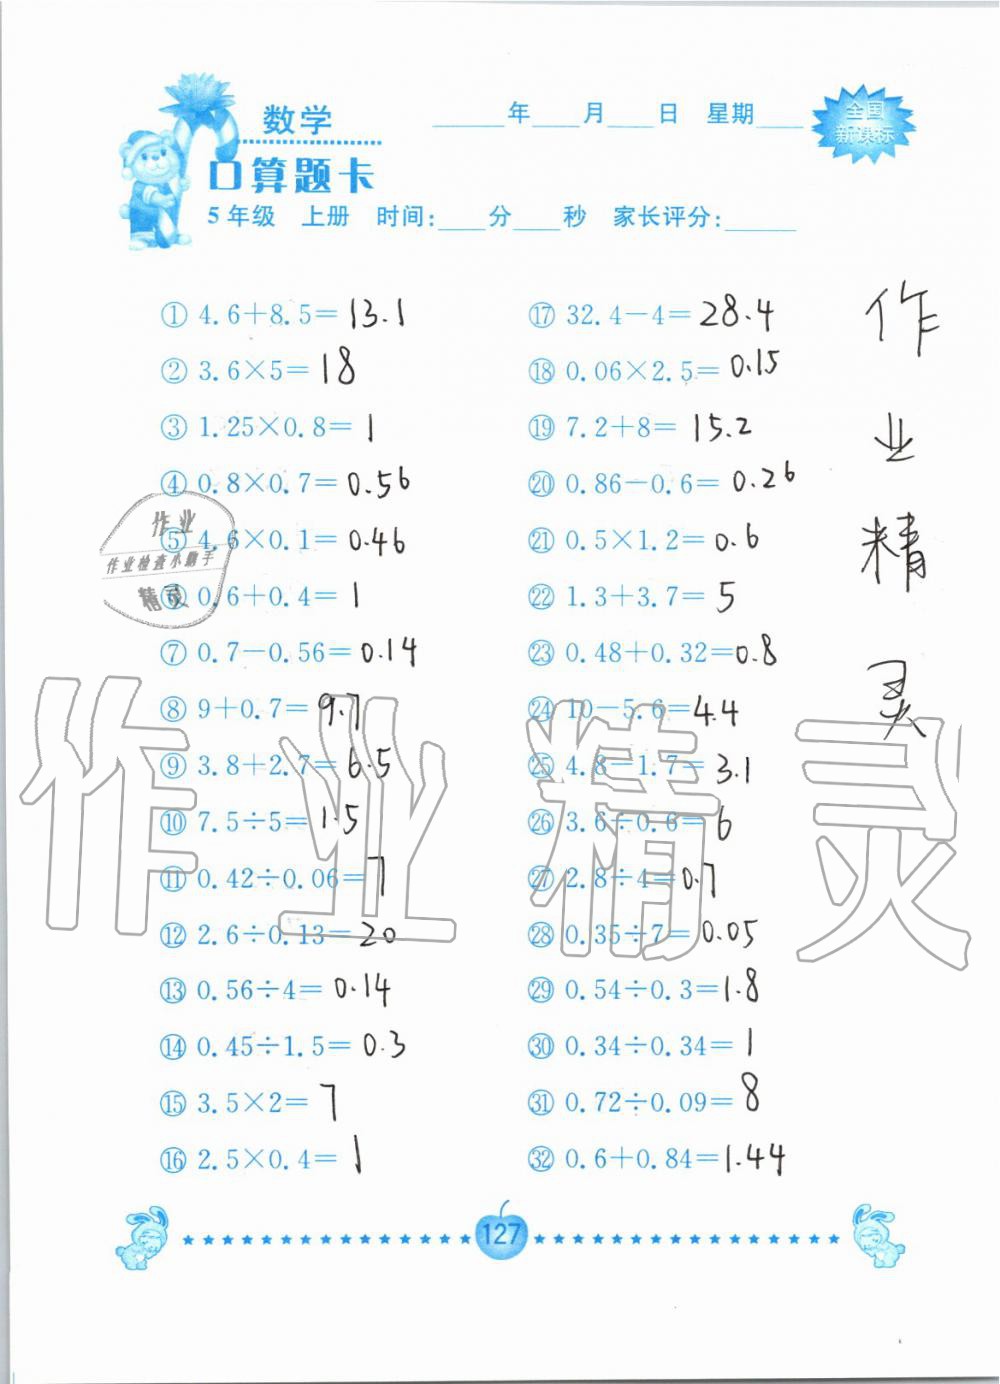 数学
____年____月____日 星期____
全国
新课标
口算题卡
5年级 上册 时间:____分____秒 家长评分:____
① 4.6+8.5=13.1
② 3.6×5=18
③ 1.25×0.8=1
④ 0.8×0.7=0.56
⑤ 4.6×0.1=0.46
⑥ 0.6+0.4=1
⑦ 0.7-0.56=0.14
⑧ 9+0.7=9.7
⑨ 3.8+2.7=6.5
⑩ 7.5÷5=1.5
⑪ 0.42÷0.06=7
⑫ 2.6÷0.13=20
⑬ 0.56÷4=0.14
⑭ 0.45÷1.5=0.3
⑮ 3.5×2=7
⑯ 2.5×0.4=1
⑰ 32.4-4=28.4
⑱ 0.06×2.5=0.15
⑲ 7.2+8=15.2
⑳ 0.86-0.6=0.26
㉑ 0.5×1.2=0.6
㉒ 1.3+3.7=5
㉓ 0.48+0.32=0.8
㉔ 10-5.6=4.4
㉕ 4.8-1.7=3.1
㉖ 3.6÷0.6=6
㉗ 2.8÷4=0.7
㉘ 0.35÷7=0.05
㉙ 0.54÷0.3=1.8
㉚ 0.34÷0.34=1
㉛ 0.72÷0.09=8
㉜ 0.6+0.84=1.44
作
业
精
灵
作业
作业检查小助手
精灵
作业精灵
127